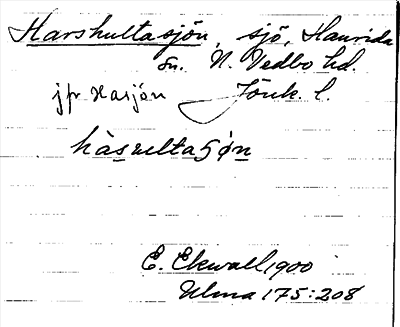 Harshultasjön, sjö, Haurida
sn. N. Vedbo hd.
jfr Hasjön Jönk. l.
hàsulta5ø̀n
E. Ekwall 1900
Ulma 175:208